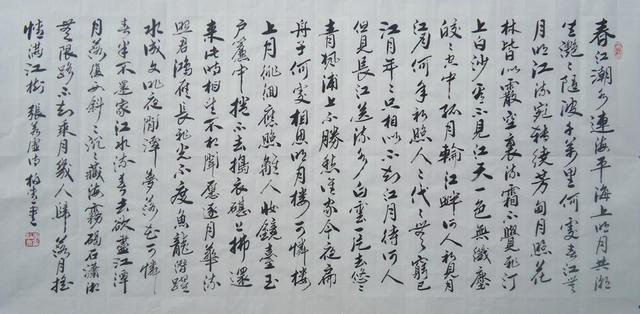 春江潮水連海平海上明月共潮
生灩〻隨波千萬里何處春江無
月明江流宛轉繞芳甸月照花
林皆似霰空裏流霜不覺飛汀
上白沙看不見江天一色無纖塵
皎〻空中孤月輪江畔何人初見月
江月何年初照人〻代〻無窮已
江月年〻只相似不知江月待何人
但見長江送流水白雲一片去悠〻
青楓浦上不勝愁誰家今夜扁
舟子何處相思明月樓可憐樓
上月徘徊應照離人妝鏡臺玉
户簾中捲不去擣衣砧上拂還
来此時相望不相聞願逐月華流
照君鴻雁長飛光不度魚龍潛躍
水成文昨夜閒潭夢落花可憐
春半不還家江水流春去欲盡江潭
月落復西斜〻沉〻藏海霧碣石瀟湘
無限路不知乘月幾人歸落月搖
情滿江樹 張若虛詩 書